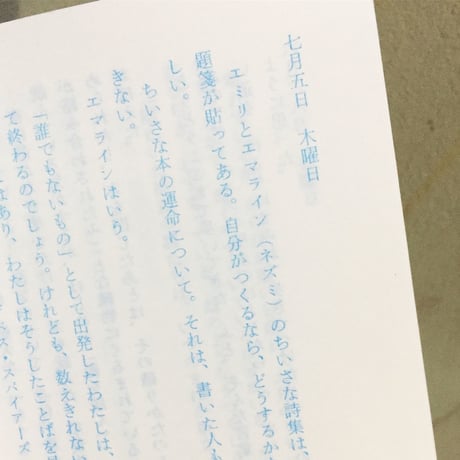 七月五日 木曜日
エミリとエマライン（ネズミ）のちいさな詩集は、
題箋が貼ってある。自分がつくるなら、どうするか
しい。
ちいさな本の運命について。それは、書いた人も
きない。
エマラインはいう。
「誰でもないもの」として出発したわたしは、
て終わるのでしょう。けれども、数えきれない
はあり、わたしはそうしたことばを
ス・スパイアーズ